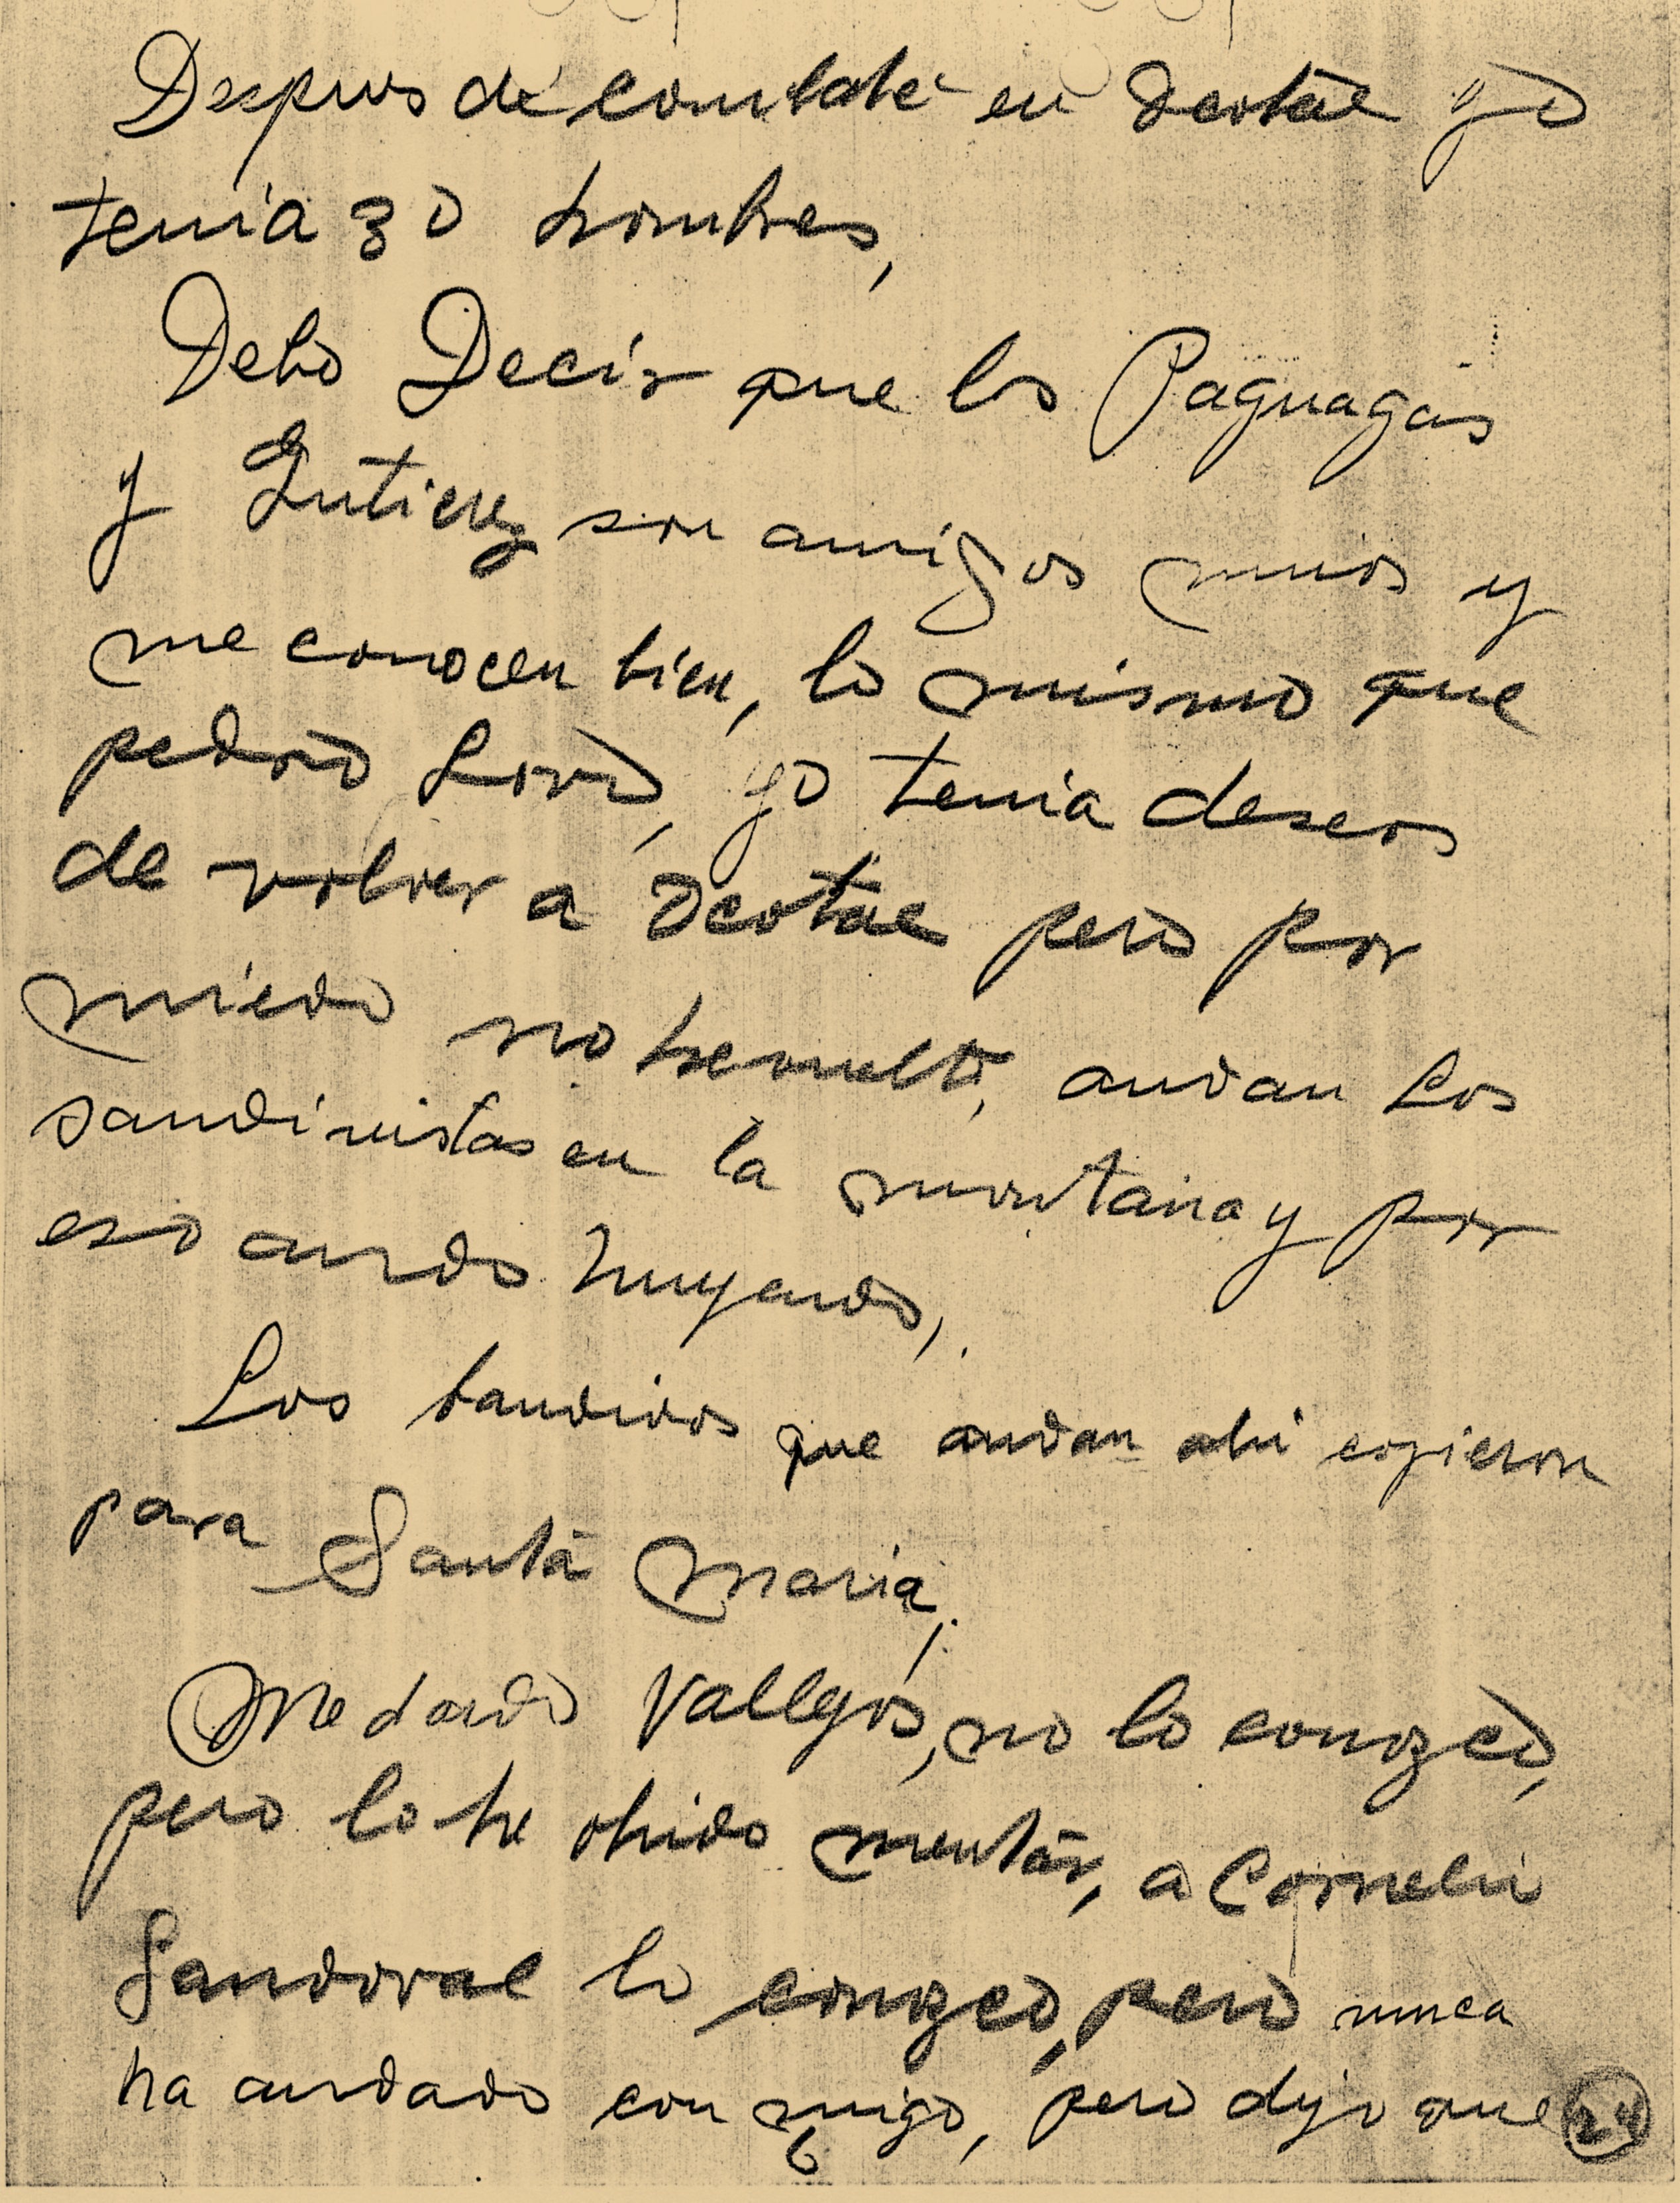 Despues de combate en Ocotal yo
tenia 30 hombres,
Debo Decir que los Paguagas
y Gutierez son amigos mios y
me conocen bien, lo mismo que
pedro Lovo, yo tenia deseos
de volver a Ocotal pero por
miedo no he vuelto, andan Los
sandinistas en la montaña y por
eso ando huyendo,
Los bandidos que andan ahi cojieron
para Santa Maria,
Medardo Vallejos, no lo conozco,
pero lo he ohido mentar, a Cornelio
Sandoval lo conozco, pero nunca
ha andado con migo, pero dijo que
24